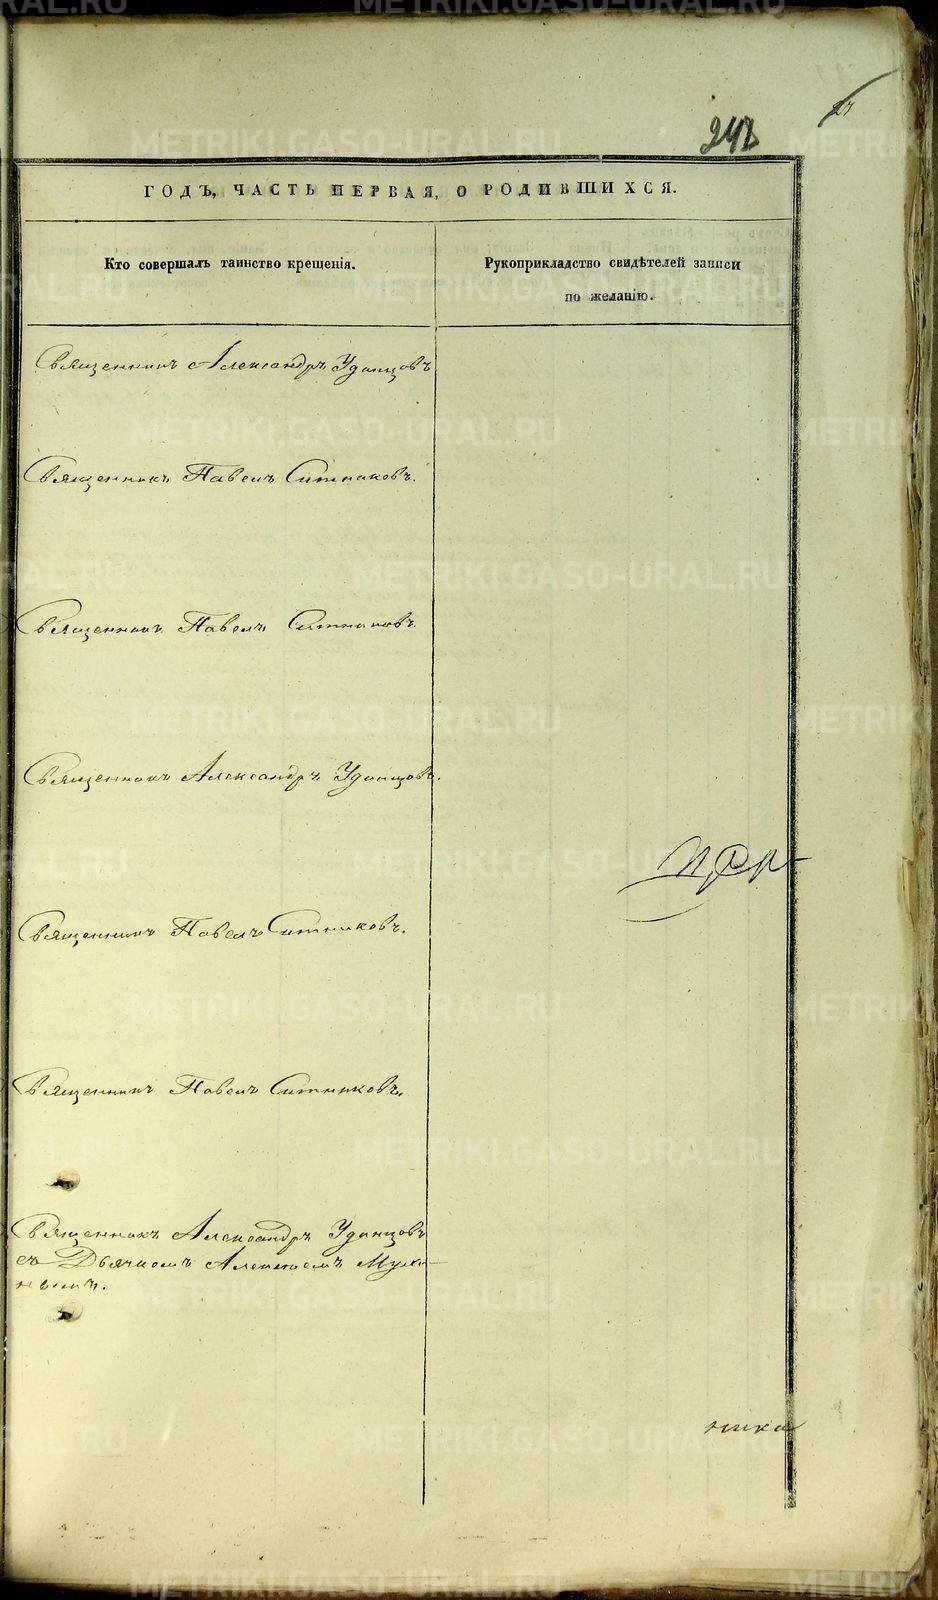 242
ГОДЪ, ЧАСТЬ ПЕРВАЯ, О РОДИВШИХСЯ.
Кто совершалъ таинство крещенія.
Рукоприкладство свидѣтелей записи
по желанію.
Священникъ Александръ Удинцовъ
Священникъ Павелъ Ситниковъ.
Священникъ Павелъ Ситниковъ.
Священникъ Александръ Удинцовъ.
Священникъ Павелъ Ситниковъ.
Священникъ Павелъ Ситниковъ.
Священникъ Александръ Удинцовъ
съ Дьячкомъ Алексѣемъ
нымъ.
METRIKI.GASO-URAL.RU